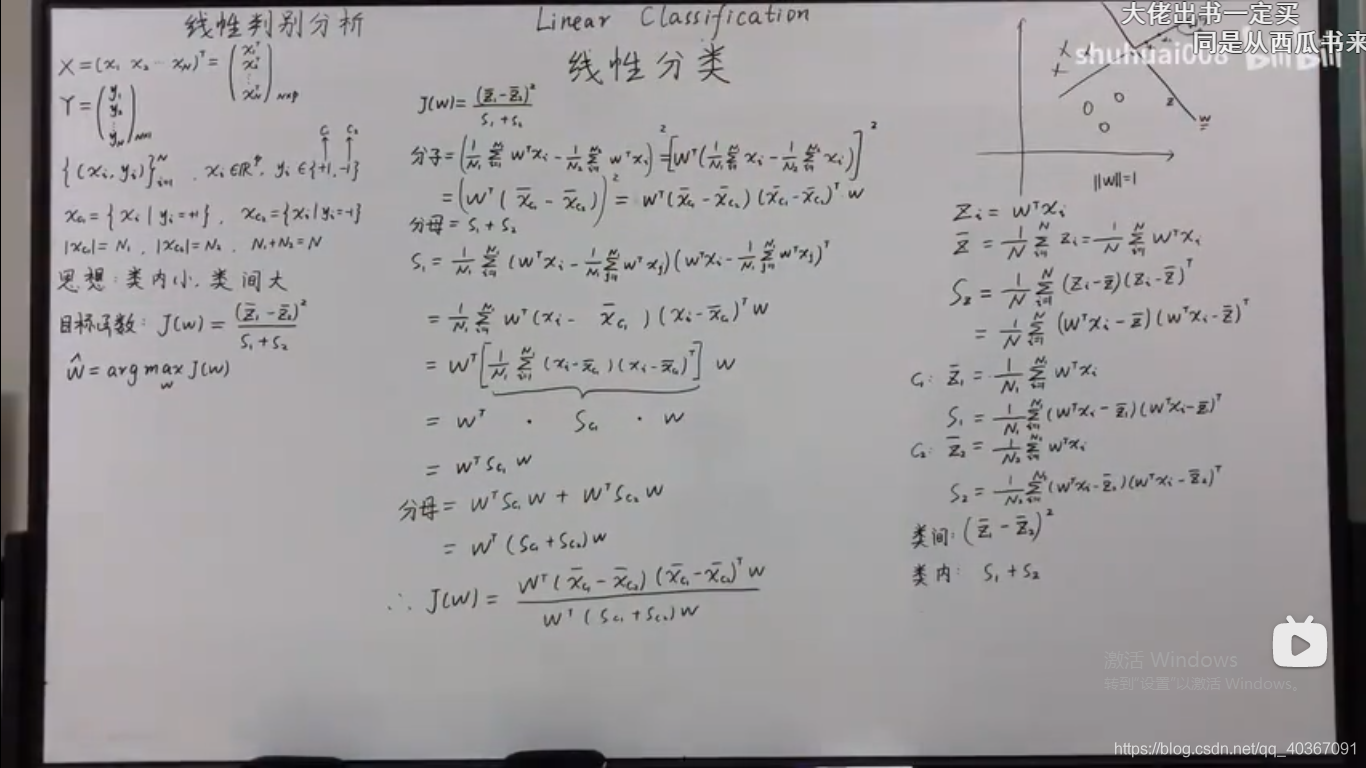 线性判别分析
X = (x₁ x₂ ⋯ x_N)ᵀ = (x₁ᵀ x₂ᵀ ⋮ x_Nᵀ)_{N×p}
Y = (y₁ y₂ ⋮ y_N)_{N×1}
C₁ C₂
{(xᵢ, yᵢ)}ᵢ₌₁ᴺ , xᵢ∈ℝᵖ, yᵢ∈{+1, -1}
x_{C₁} = {xᵢ | yᵢ=+1}, x_{C₂} = {xᵢ | yᵢ=-1}
|x_{C₁}| = N₁, |x_{C₂}| = N₂, N₁+N₂=N
思想: 类内小, 类间大
目标函数: J(w) = (z̄₁ - z̄₂)² / (S₁+S₂)
ŵ = argmax_w J(w)
Linear Classification
线性分类
J(w) = (z̄₁-z̄₂)² / (S₁+S₂)
分子 = (1/N₁ Σᵢ₌₁^{N₁} wᵀxᵢ - 1/N₂ Σᵢ₌₁^{N₂} wᵀxᵢ)² = [wᵀ(1/N₁ Σᵢ₌₁^{N₁} xᵢ - 1/N₂ Σᵢ₌₁^{N₂} xᵢ)]²
= (wᵀ(x̄_{C₁} - x̄_{C₂}))² = wᵀ(x̄_{C₁} - x̄_{C₂})(x̄_{C₁} - x̄_{C₂})ᵀ w
分母 = S₁+S₂
S₁ = 1/N₁ Σᵢ₌₁^{N₁} (wᵀxᵢ - 1/N₁ Σⱼ₌₁^{N₁} wᵀxⱼ)(wᵀxᵢ - 1/N₁ Σⱼ₌₁^{N₁} wᵀxⱼ)ᵀ
= 1/N₁ Σᵢ₌₁^{N₁} wᵀ(xᵢ - x̄_{C₁})(xᵢ - x̄_{C₁})ᵀ w
= wᵀ[1/N₁ Σᵢ₌₁^{N₁} (xᵢ-x̄_{C₁})(xᵢ-x̄_{C₁})ᵀ] w
= wᵀ · S_{C₁} · w
= wᵀ S_{C₁} w
分母 = wᵀS_{C₁}w + wᵀS_{C₂}w
= wᵀ(S_{C₁}+S_{C₂})w
∴ J(w) = wᵀ(x̄_{C₁} - x̄_{C₂})(x̄_{C₁} - x̄_{C₂})ᵀ w / wᵀ(S_{C₁}+S_{C₂})w
大佬出书一定买
同是从西瓜书来
shuhuai008 bilibili
z
w
||w||=1
zᵢ = wᵀxᵢ
z̄ = 1/N Σᵢ₌₁ᴺ zᵢ = 1/N Σᵢ₌₁ᴺ wᵀxᵢ
S_z = 1/N Σᵢ₌₁ᴺ (zᵢ-z̄)(zᵢ-z̄)ᵀ
= 1/N Σᵢ₌₁ᴺ (wᵀxᵢ - z̄)(wᵀxᵢ - z̄)ᵀ
C₁: z̄₁ = 1/N₁ Σᵢ₌₁^{N₁} wᵀxᵢ
S₁ = 1/N₁ Σᵢ₌₁^{N₁} (wᵀxᵢ - z̄₁)(wᵀxᵢ - z̄)ᵀ
C₂: z̄₂ = 1/N₂ Σᵢ₌₁^{N₂} wᵀxᵢ
S₂ = 1/N₂ Σᵢ₌₁^{N₂} (wᵀxᵢ - z̄₂)(wᵀxᵢ - z̄₂)ᵀ
类间: (z̄₁ - z̄₂)²
类内: S₁+S₂
激活 Windows
转到"设置"以激活 Windows。
https://blog.csdn.net/qq_40367091